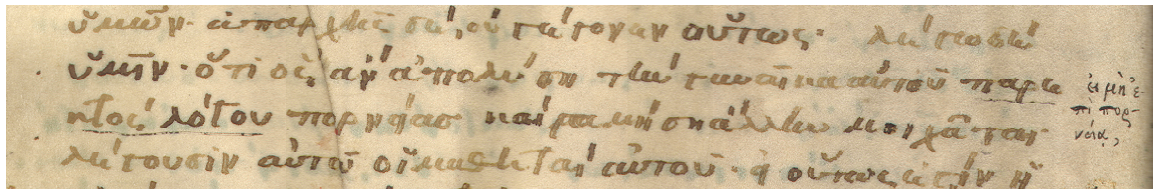 ὑμῶν· ἀπαρχῆς δὲ, οὐ γέγονεν οὕτως· λέγω δὲ
ὑμῖν· ὅτι ὃς ἂν ἀπολύση τὴν γυναῖκα αὐτοῦ παρε
κτὸς λόγου πορνείας καὶ γαμήση ἄλλην μοιχᾶται·
λέγουσιν αὐτῶ οἱ μαθηταὶ αὐτοῦ· εἰ οὕτως ἐστὶν ἡ
εἰ μὴ ἐ-
πὶ πορ-
νείᾳ,